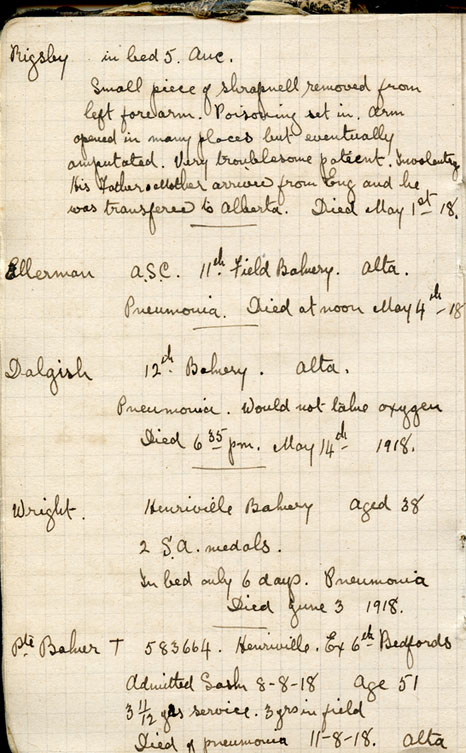 Rigsby in bed 5. Auc.
Small piece of shrapnell removed from
left forearm. Poisoning set in. Arm
opened in many places but eventually
amputated. Very troublesome patient. Involentry
His Father & Mother arrived from Eng and he
was transfered to Alberta. Died May 1st 18.
Ellerman A.S.C. 11th Field Bakery. Alta.
Pneumonia. Died at noon May 4th - 18
Dalgish 12th Bakery. Alta.
Pneumonia. Would not take oxygen
Died 6 35 pm. May 14th 1918.
Wright. Henriville Bakery Aged 38
2 S.A. medals.
In bed only 6 days. Pneumonia
Died June 3 1918.
Pte Baker T 583664. Henriville. Ex 6th Bedfords
Admitted 8-8-18 Age 51
3 11/12 yrs service. 3 yrs in field
Died of pneumonia 11-8-18. Alta